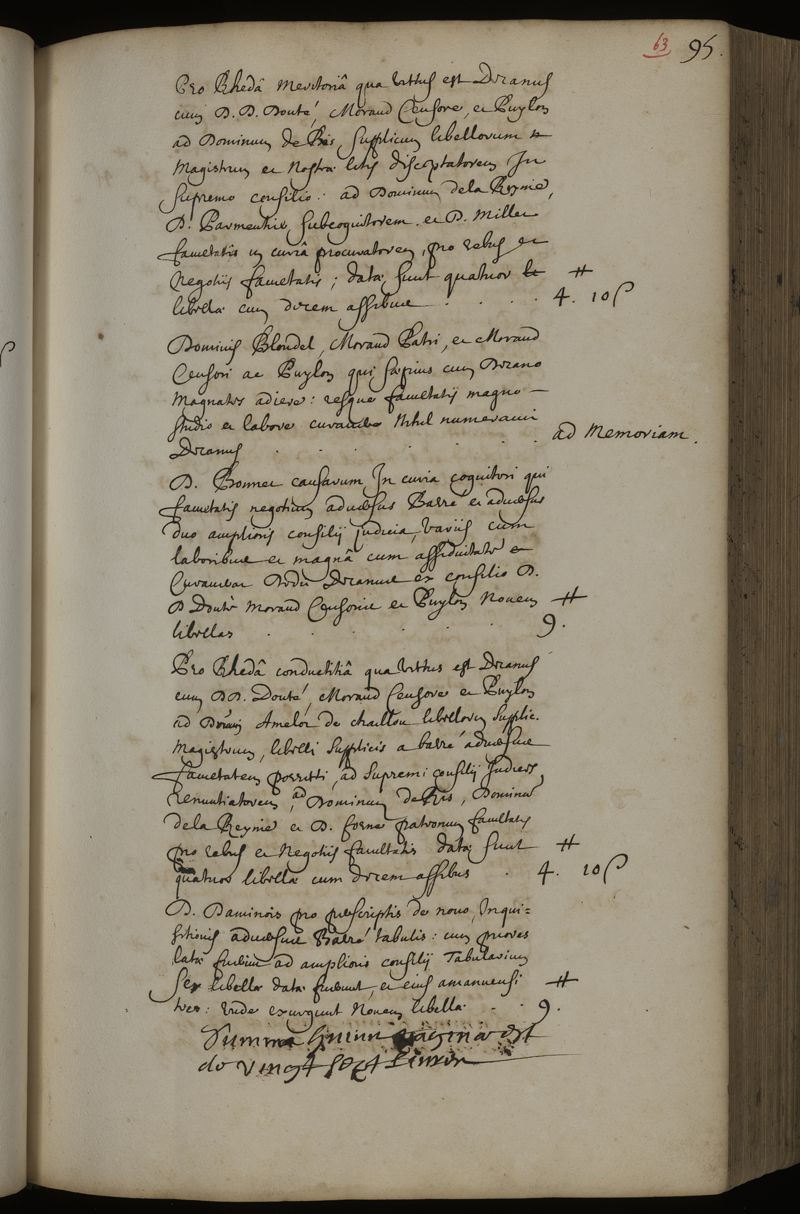 63 95.
Pro Rhedâ Meritoriâ qua vectus est Decanus
cum D. D. Douté, Morand Censore, et Puylon
ad Dominum de Ris, supplicum libellorum
Magistrum et Nostræ litis disceptatorem In
supremo consilio: ad Dominum de la Reynie,
D. Parmentier subcognitorem et D. Millet
facultatis in curiâ procuratorem, pro rebus et
Negotiis facultatis; datæ sunt quatuor
libellæ cum decem assibus . . . . 4.# 10 ſ
Dominis Blondel, Morand Patri, et Morand
Censori ac Puylon qui sæpius cum Decano
Magnates adiere: resque facultatis magno
studio et labore curavere Nihil numeravit
Decanus . . . . . . ad Memoriam.
D. Bonnet causarum In curia cognitori qui
facultatis negotium adversus Barré et adversus
duo amplioris consilii judicia, variis cum
laboribus et magnâ cum assiduitate
Decanus ex consilio D.
D Douté Morand Censoris et Puylon Novem
libellas . . . . . . 9.#
Pro Rhedâ conductitiâ qua vectus est Decanus
cum DD. Douté, Morand Censore et Puylon
ad Dñum Amelot de chaillou libellorum supplic.
Magistrum, libelli supplicis a barré adversus
facultatem porrecti, ad supremi consilii Judices
renuntiatorem, ad Dominum de Ris, Dominum
de la Reynie et D. patronum facultatis
pro rebus et Negotiis facultatis datæ sunt
quatuor libellæ cum decem assibus . 4.# 10 ſ
D. Daminois pro præscriptis de novo Inqui=
sitionis adversus Barré tabulis: cum priores
latæ fuerint ad amplioris consilii Tabularium
sex libellæ datæ fuerunt, et eius amanuensi
tres: unde exurgunt Novem libellæ . . 9.#
Summa huius paginæ est
de vingt sept livres